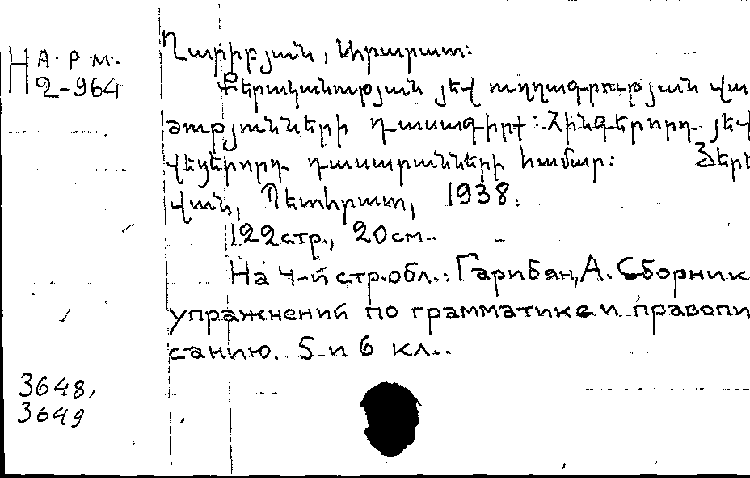 Н А. Р. М.
2-964
Ղարիբյան, Արարատ:
Քերականության յեվ ուղղագրության վա
ժությունների դասագիրք: Հինգերորդ յեվ
վեցերորդ դասարանների համար: Յերե
վան, Պետհրատ, 1938.
122стр., 20см.
На 4-й стр.обл.: Гарибян, А. Сборник
упражнений по грамматике и правопи
санию. 5 и 6 кл..
3648,
3649